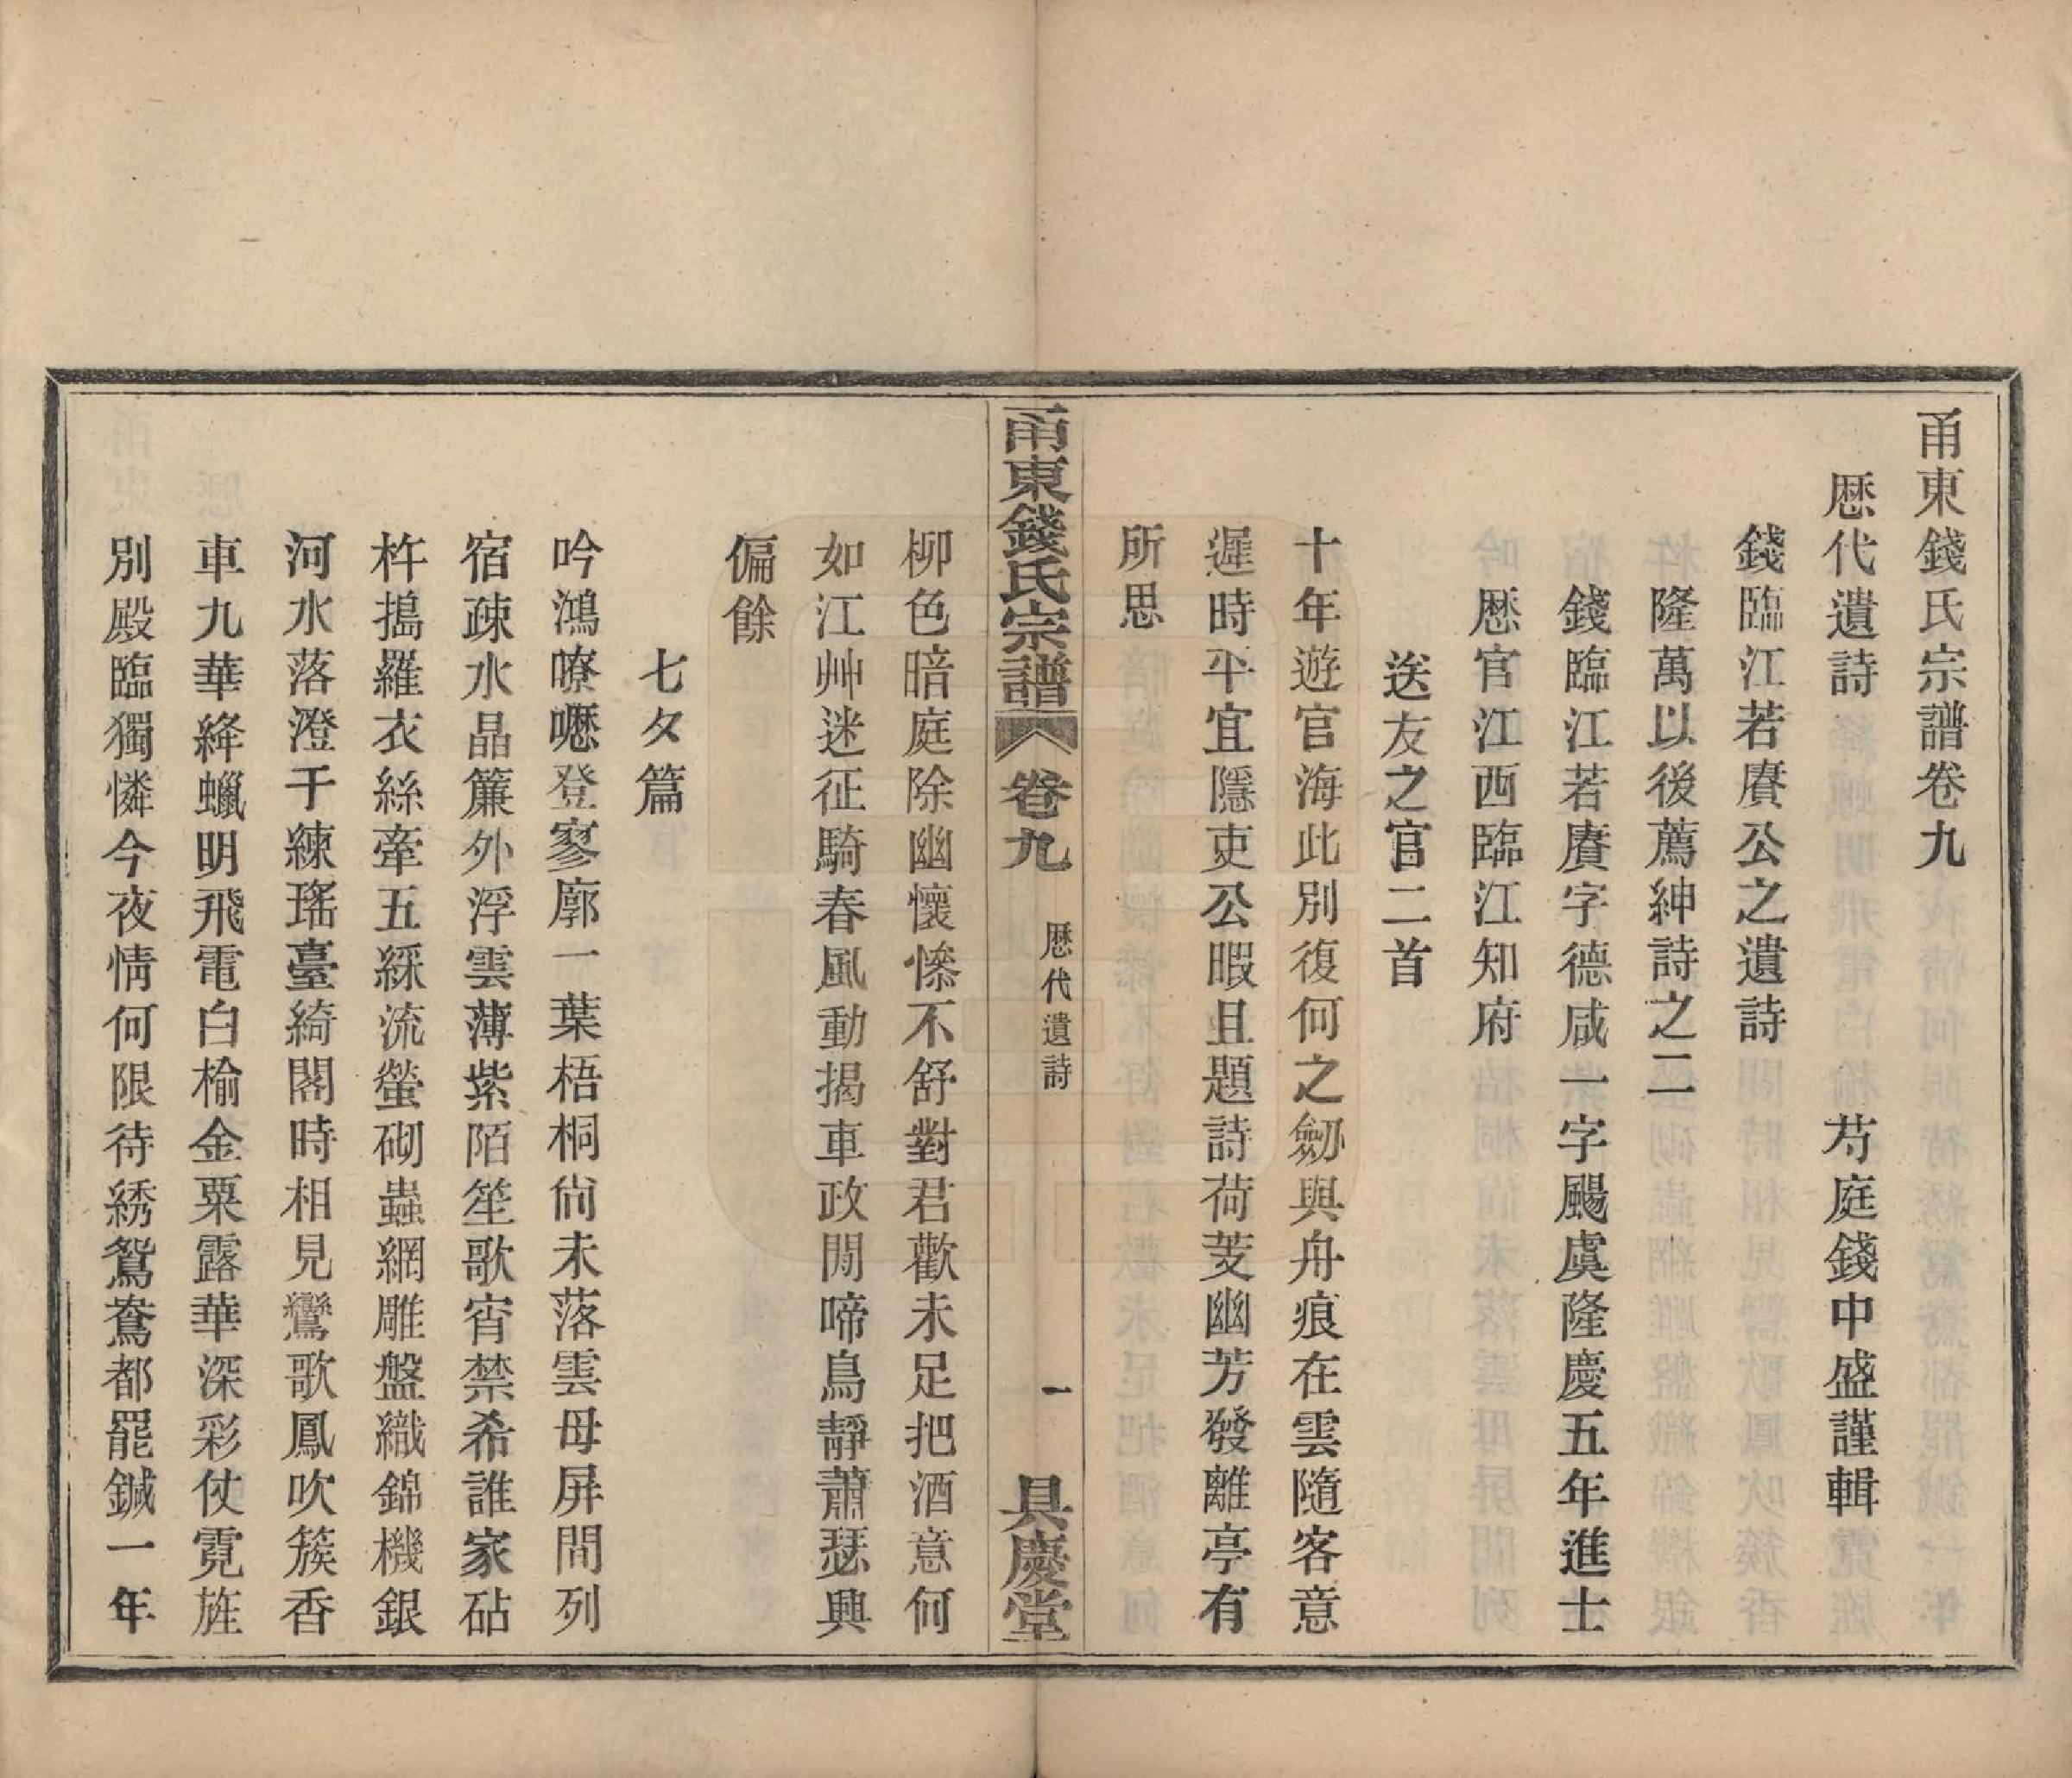 甬東錢氏宗譜卷九
歷代遺詩　芍庭錢中盛謹輯
錢臨江若賡公之遺詩
隆萬以後薦紳詩之二
錢臨江若賡字德咸一字颺虞隆慶五年進士
歷官江西臨江知府
送友之官二首
十年遊官海此別復何之劒與舟痕在雲隨客意
遲時平宜隱吏公暇且題詩荷芰幽芳發離亭有
所思
甬東錢氏宗譜　卷九　歷代遺詩　一　具慶堂
柳色暗庭除幽懷慘不舒對君歡未足把酒意何
如江艸迷征騎春風動揭車政閒啼鳥靜蕭瑟興
偏餘
七夕篇
吟鴻嘹嚦登寥廓一葉梧桐尙未落雲母屏間列
宿疎水晶簾外浮雲薄紫陌笙歌宵禁希誰家砧
杵搗羅衣絲牽五綵流螢砌蟲網雕盤織錦機銀
河水落澄千練瑤臺綺閣時相見鸞歌鳳吹簇香
車九華絳蠟明飛電白榆金粟露華深彩仗霓旌
別殿臨獨憐今夜情何限待綉鴛鴦都罷鍼一年